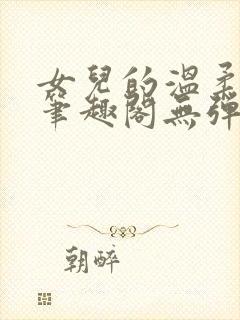 女兒的溫柔
筆趣閣無彈
朝醉